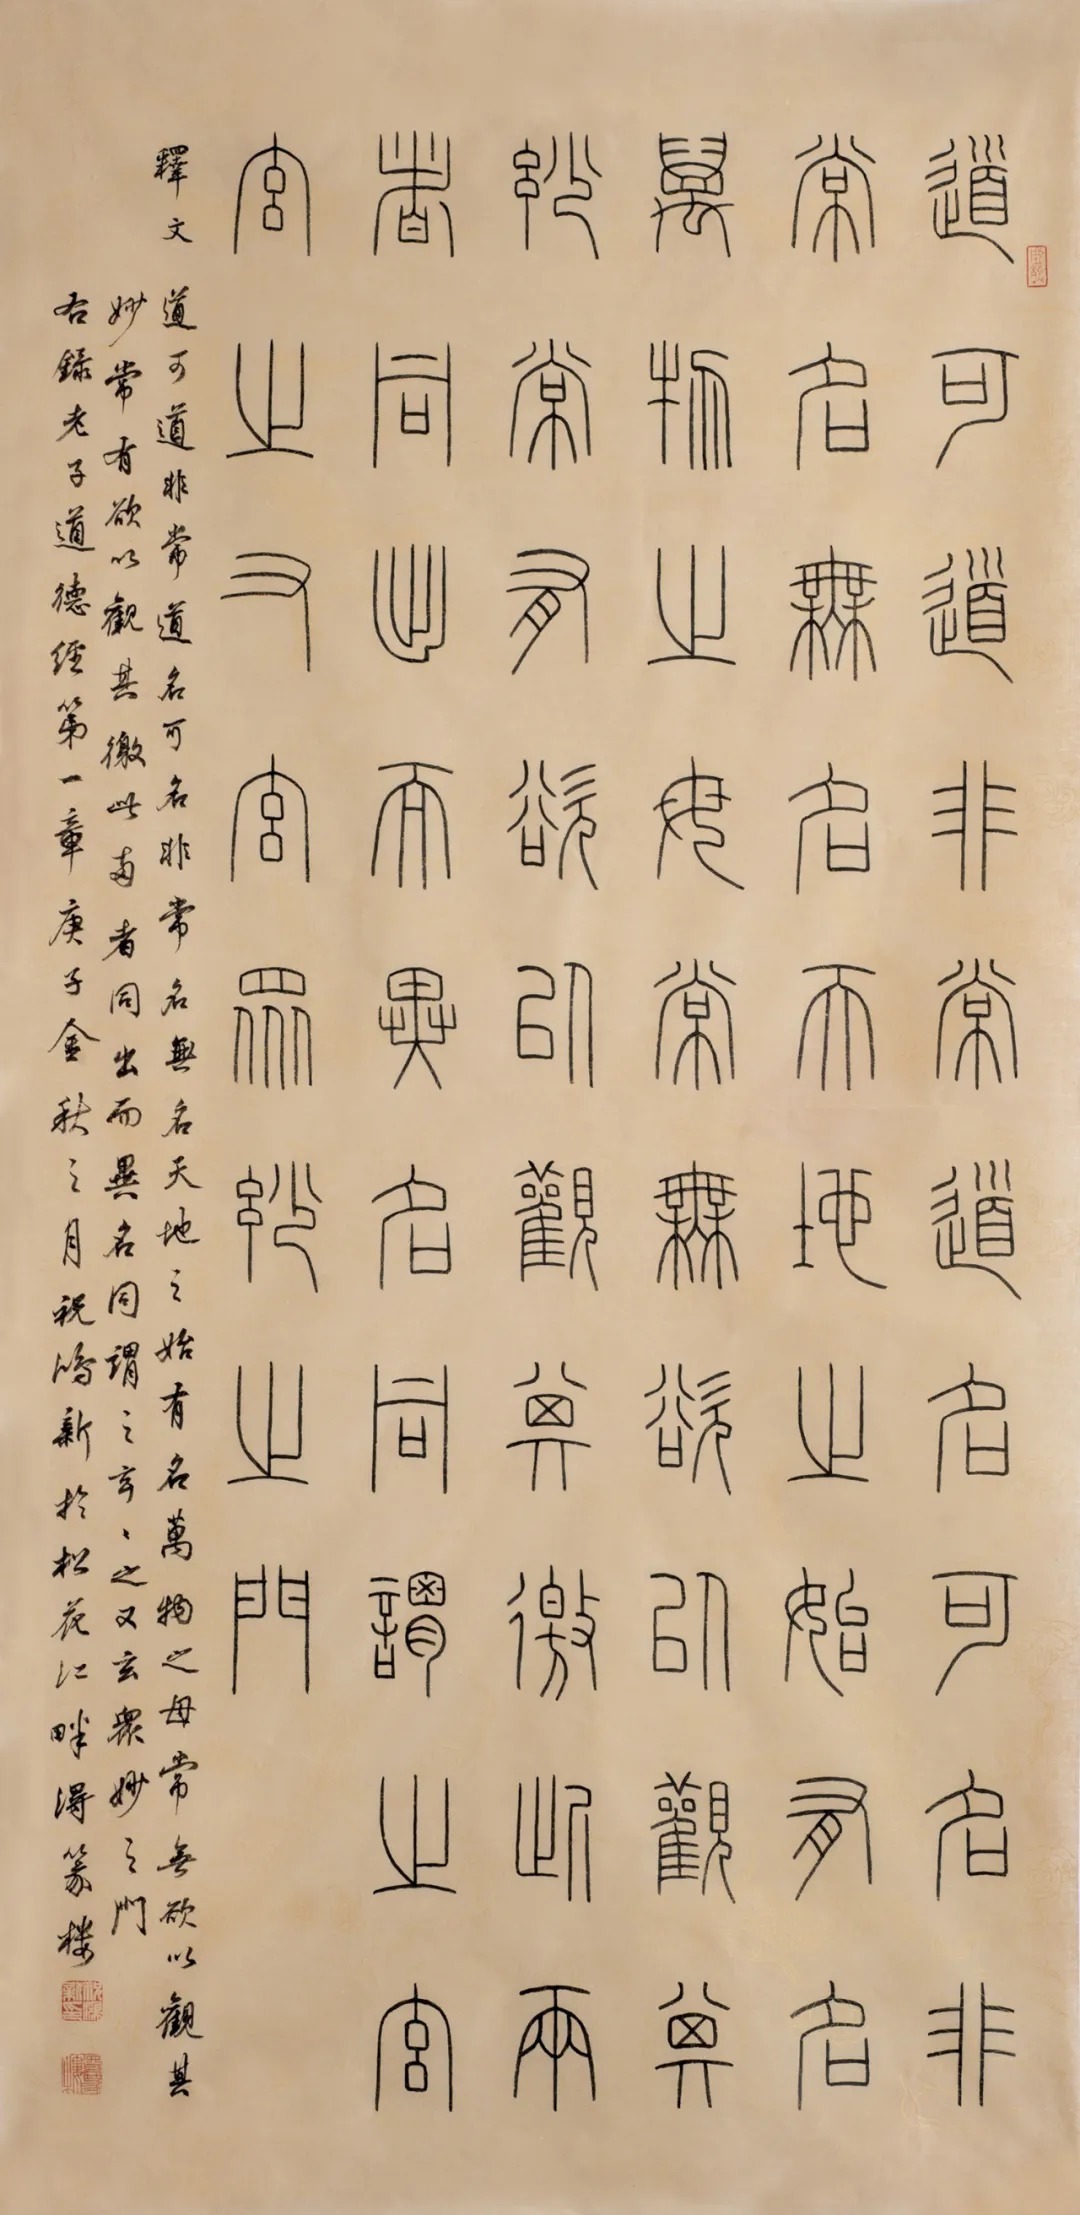 道可道非常道名可名非
常名無名天地之始有名
萬物之母常無欲以觀其
妙常有欲以觀其徼此兩
者同出而異名同謂之玄
玄之又玄眾妙之門
釋文 道可道非常道名可名非常名無名天地之始有名萬物之母常無欲以觀其
妙常有欲以觀其徼此兩者同出而異名同謂之玄〻之又玄眾妙之門
右錄老子道德經第一章庚子金秋之月祝鴻新於松花江畔得篆樓